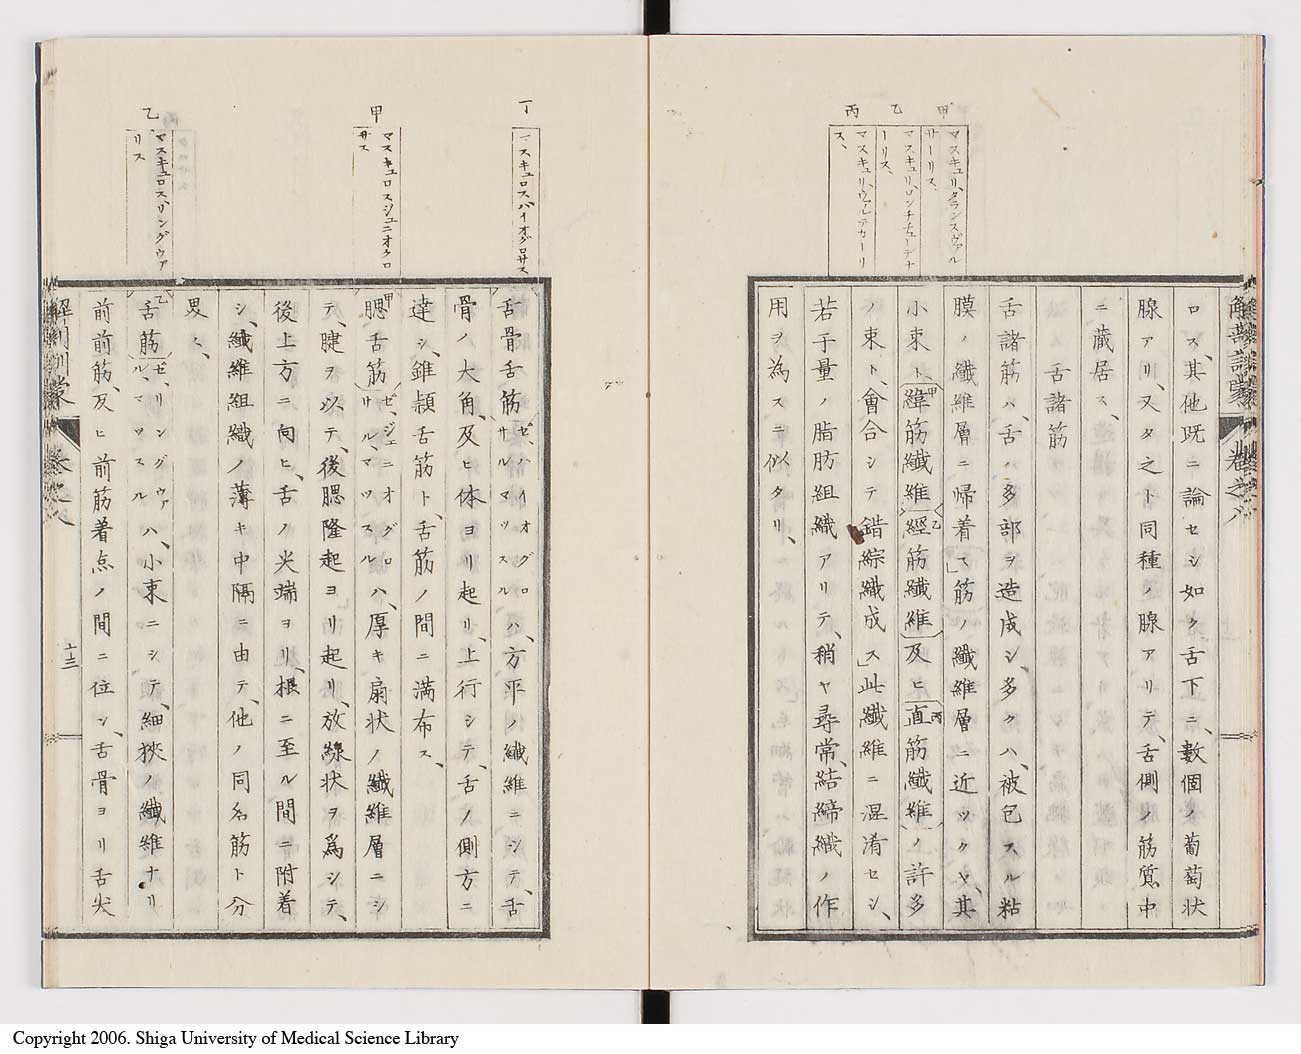 甲
マスキュリ、タランスヴァル
サーリス、
乙
マスキュリ、ロンチチューデナ
ーリス、
丙
マスキュリ、ヴァルテカーリ
ス、
解剖訓蒙 卷之八
ロス、其他既ニ論セシ如ク舌下ニ、數個ノ葡萄状
腺アリ、又タ之ト同種ノ腺アリテ、舌側ノ筋質中
ニ藏居ス、
舌諸筋
舌諸筋ハ、舌ノ多部ヲ造成シ、多クハ、被包スル粘
膜ノ纎維層ニ帰着ス」筋ノ纎維層ニ近ツクヤ、其
小束ト、緯筋纎維甲經筋纎維乙及ヒ直筋纎維丙ノ許多
ノ束ト、會合シテ錯綜織成ス」此纎維ニ混淆セシ、
若干量ノ脂肪組織アリテ、稍ヤ尋常、結締織ノ作
用ヲ為スニ似タリ、
丁
マスキュロスハイオグロサス
甲
マスキュロスジェニオグロ
サス
乙
マスキュロス、リングウァ
リス
舌骨舌筋ゼ、ハイオグロサルマッスルハ、方平ノ纎維ニシテ、舌
骨ノ大角、及ヒ体ヨリ起リ、上行シテ、舌ノ側方ニ
達シ、錐頴舌筋ト、舌筋ノ間ニ満布ス、
甲腮舌筋ゼ、ジェニオグロサル、マッスルハ、厚キ扇状ノ纎維層ニシ
テ、腱ヲ以テ、後腮隆起ヨリ起リ、放線状ヲ爲シテ、
後上方ニ向ヒ、舌ノ尖端ヨリ、根ニ至ル間ニ附着
シ、纎維組織ノ薄キ中隔ニ由テ、他ノ同名筋ト分
界ス、
乙舌筋ゼ、リングヴァル、マッスルハ、小束ニシテ、細狹ノ纎維ナリ
前前筋、及ヒ前筋着点ノ間ニ位シ、舌骨ヨリ舌尖
解剖訓蒙 卷之八
十三